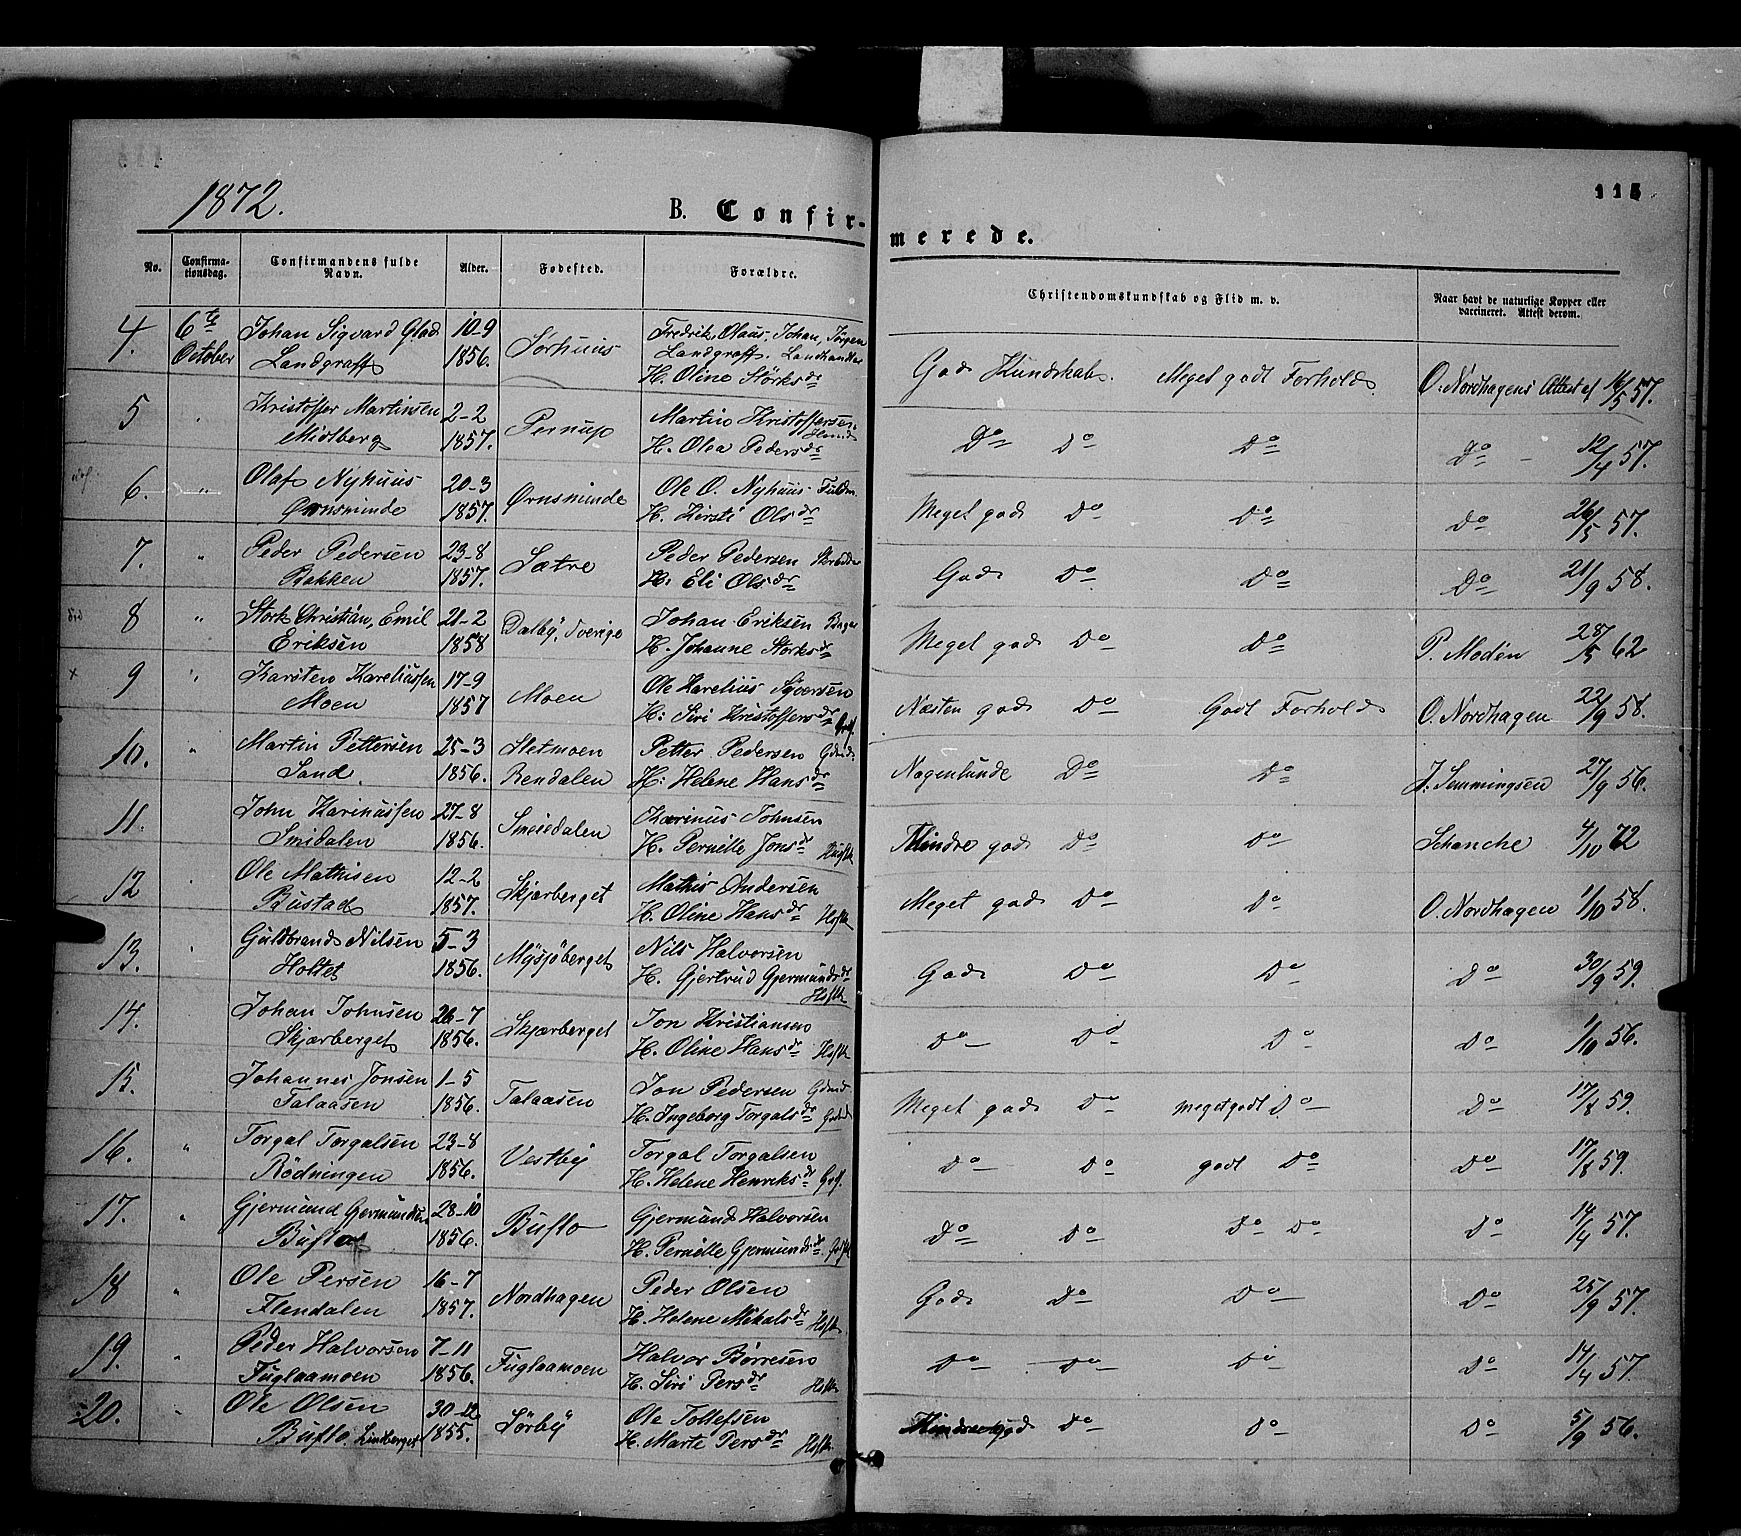 1872.
115
B. Confir-
merede.
No.
Confirma-
tionsdag.
Confirmandens fulde
Navn.
Alder.
Fødested.
Forældre.
Christendomskundskab og Flid m. v.
Naar havt de naturlige Kopper eller
vaccineret. Attest derom.
4. 6te Johan Sigvard Glad 10-9 Sørhuus Fredrik Olaus, Johan, Jörgen
October Landgraff 1856. Landgraff. Landhandler
H. Oline Störksdr
God Kundskab. Meget godt Forhold O. Nordhagens Attest af 16/5 57.
5 " Kristoffer Martinsen 2-2 Pernup Martin Kristoffersen
Midtberg 1857. H. Olea Pedersdr
Do Do Do Do - 12/4 57.
6. " Olaf Nyhuus 20-3 Ørnsminde Ole O. Nyhuus
Ørnsminde 1857. H. Kirsti Olsdr
Meget god Do Do Do 26/5 57.
7. " Peder Pedersen 23-8 Sætre Peder Pedersen
Bakken 1857. H. Eli Olsdr
God Do Do Do 21/9 58.
8 " Stork Christian, Emil 21-2 Dalby, Sverige Johan Eriksen
Eriksen 1858 H. Johanne Storksdr
Meget god Do Do P. Modén 28/5 62
x 9 " Karsten Kareliussen 17-9 Moen Ole Karelius Syversen
Moen 1857 H: Siri Kristoffersdr
Næsten god Do Godt Forhold O. Nordhagen 22/9 58.
10. " Martin Pettersen 25-3 Sletmoen Petter Pedersen Gdmd
Sand. 1856. Rendalen H: Helene Hansdr
Nogenlunde Do Do J. Semmingsen 27/9 56.
11. John Karinussen 27-8 Smeiedalen Karinus Johnsen
Smidalen 1856. H. Pernille Jonsdr
Mindre god Do Do Schanche 4/10 72
12 Ole Mathisen 12-2 Skjærberget Mathis Andersen
Bustad 1857. H. Oline Hansdr Hsfk
Meget god Do Do O. Nordhagen 1/10 58.
13. Guldbrand Nilsen 5-3 Mÿsjöberget Nils Halvorsen
Holtet 1856. H. Gjertrud Gjermundsdr
Hsfk
God Do Do Do 30/9 59.
14. Johan Johnsen 26-7 Skjærberget Jon Kristiansen
Skjærberget 1856. H. Oline Hansdr Hsfk
Do Do Do Do 1/10 56.
15. Johannes Jonsen 1-5 Talaasen Jon Pedersen Gdmd
Talaasen 1856. H. Ingeborg Torgalsdr
Meget god Do meget godt Do Do 17/8 59.
16. " Torgal Torgalsen 23-8 Vestby Torgal Torgalsen
Rödningen 1856. H. Helene Henriksdr
Do Do godt Do Do 17/8 59.
17. " Gjermund Gjermundsen 28-10 Buflo Gjermund Halvorsen
Buflo 1856. H. Pernille Gjermundsdr
Do Do Do Do Do 14/4 57.
18 " Ole Persen 16-7 Nordhagen Peder Olsen
Flendalen 1857. H. Helene Mikalsdr Hsfk
God Do Do Do 25/9 57.
19. " Peder Halvorsen 7-11 Fuglaamoen Halvor Börresen
Fuglaamoen 1856. H. Siri Persdr Hsfk
Do - Do Do Do 14/4 57.
20. Ole Olsen 30-12 Sörby Ole Tollefsen
Buflo. Lindberget 1855. H. Marte Persdr Hsfk
Mindre god Do Do Do 5/9 56.